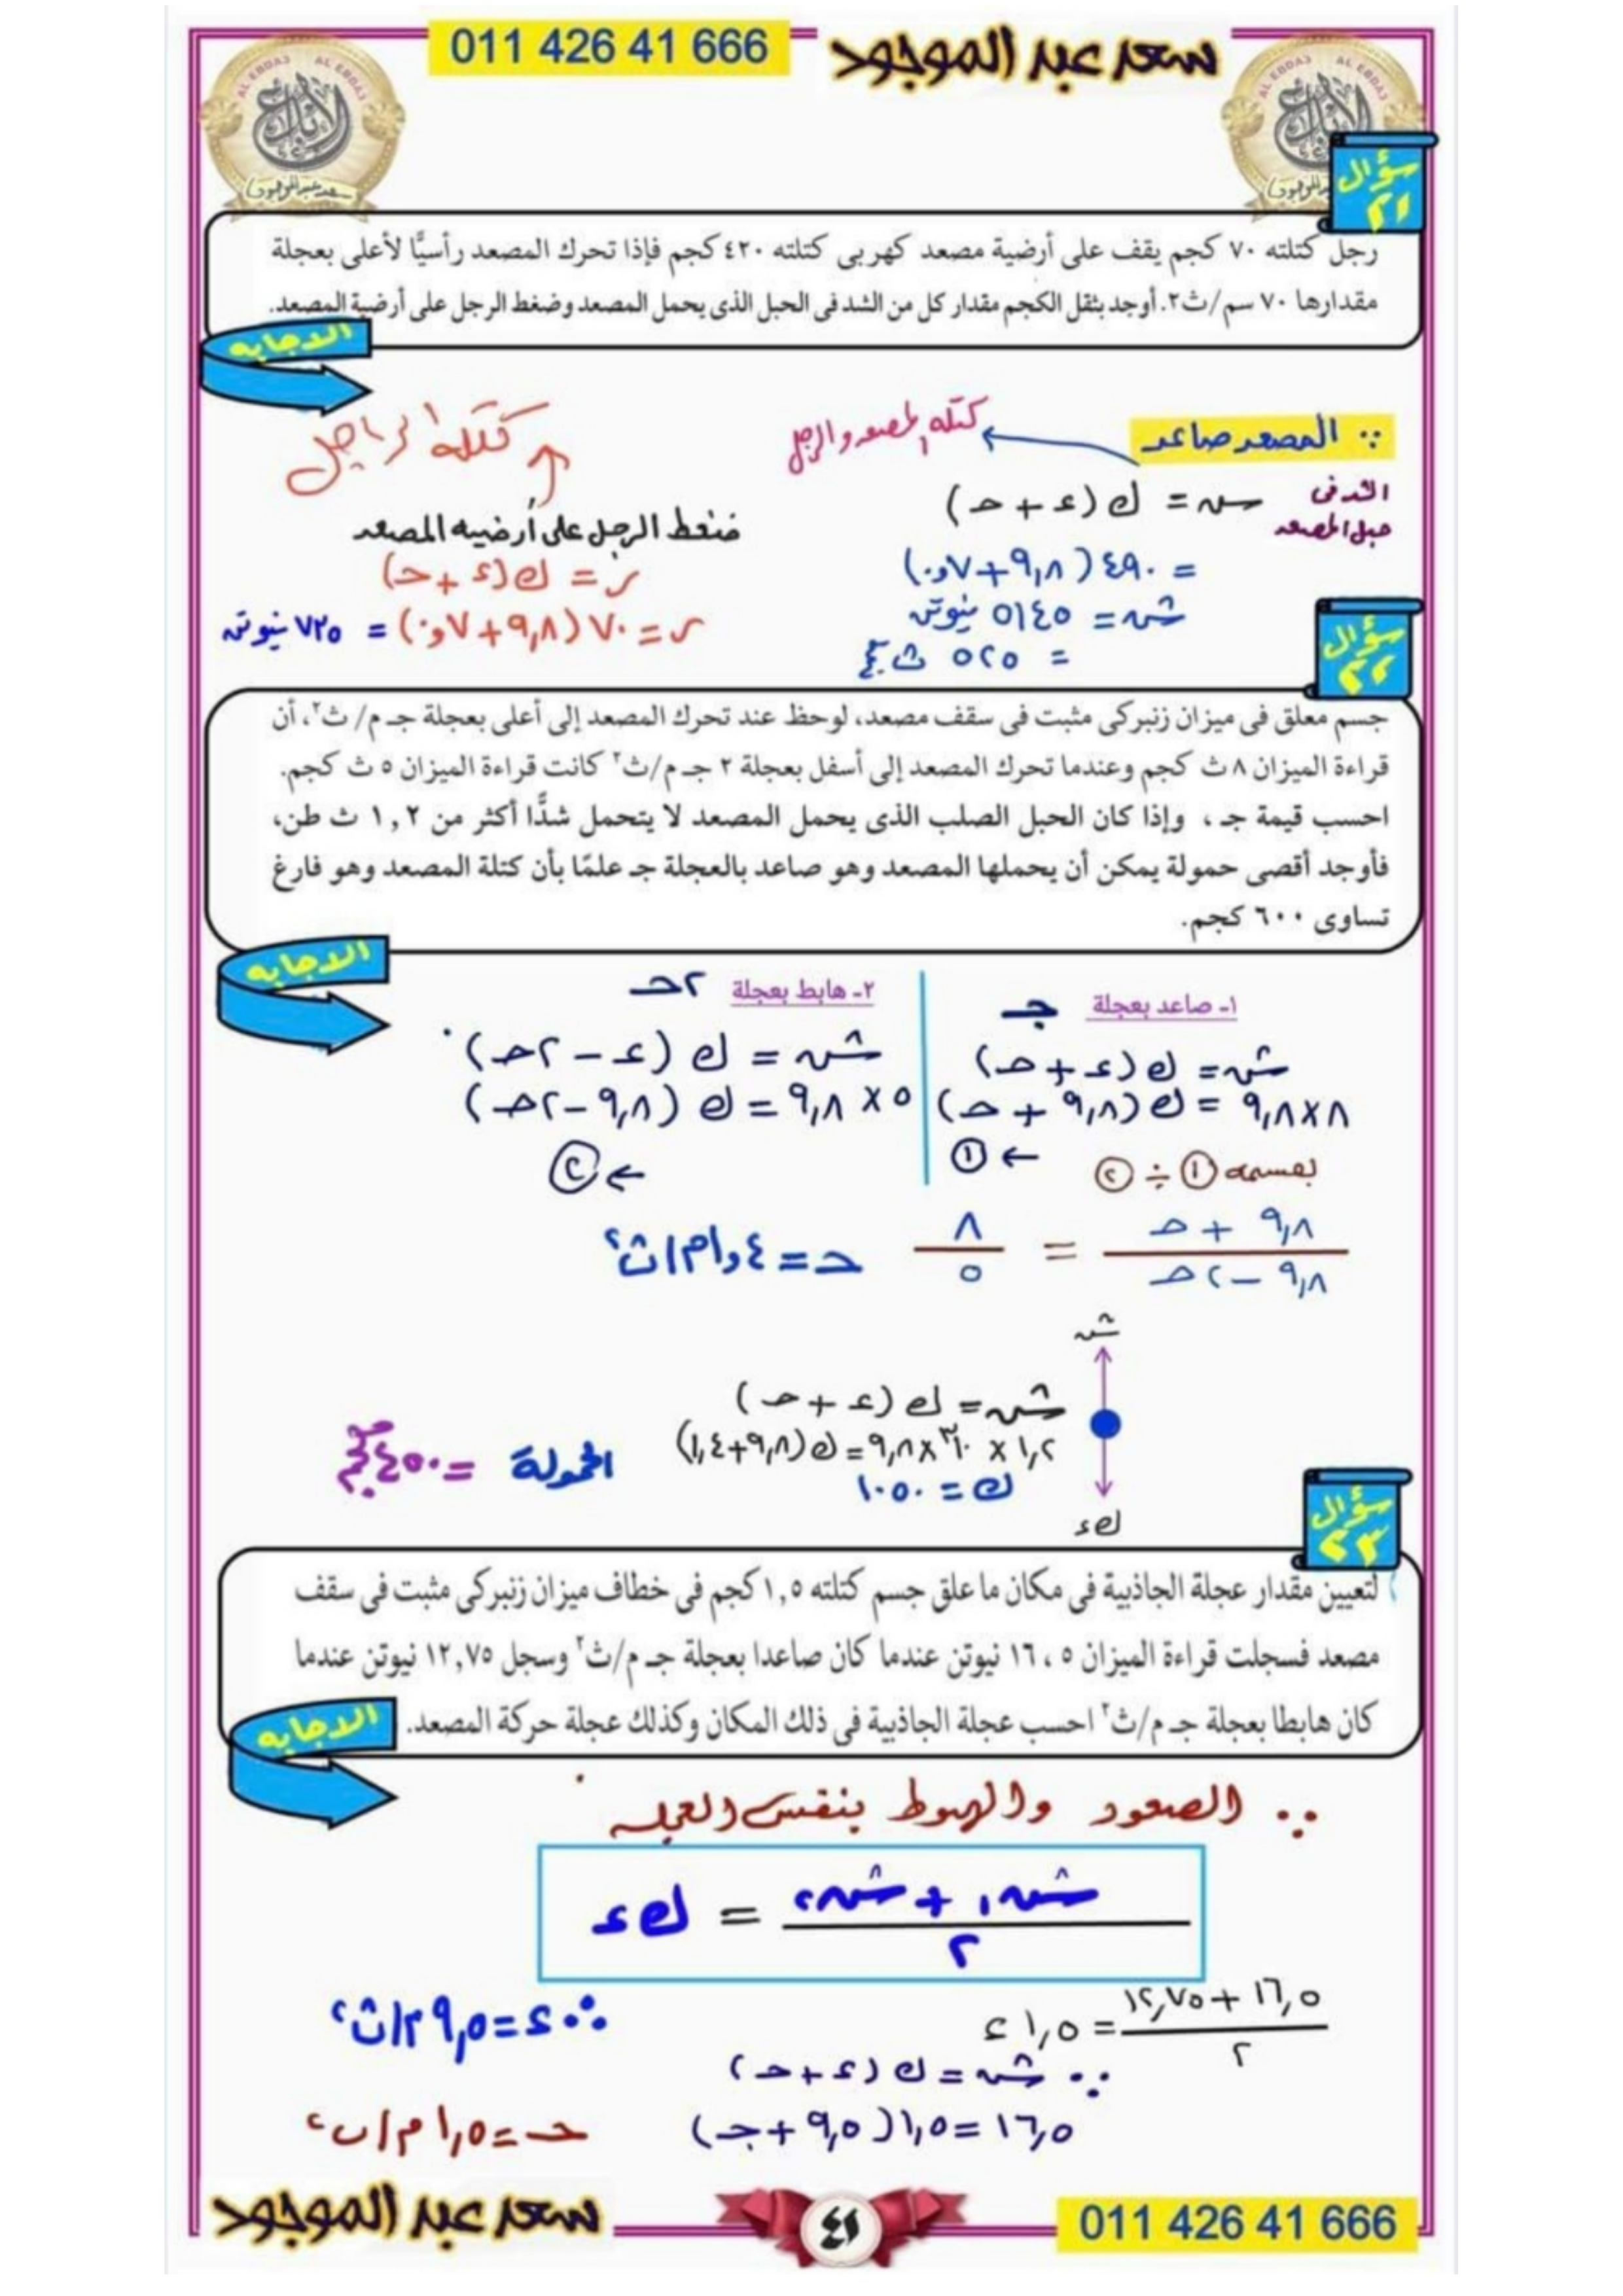 011 426 41 666
سعد عبد الموجود
AL EBDA3 AL EBDA3
الإبداع
سعد عبد الموجود
سؤال ٢١
رجل كتلته ٧٠ كجم يقف على أرضية مصعد كهربى كتلته ٤٢٠ كجم فإذا تحرك المصعد رأسيًّا لأعلى بعجلة
مقدارها ٧٠ سم/ث٢. أوجد بثقل الكجم مقدار كل من الشد فى الحبل الذى يحمل المصعد وضغط الرجل على أرضية المصعد.
الاجابه
∵ المصعد صاعد
كتله المصعد والرجل
الشد فى حبل المصعد
سہ = ك (ء + حـ)
= ٤٩٠ (٩,٨ + ٠,٧)
شہ = ٥١٤٥ نيوتن
= ٥٢٥ ث كجم
كتلة الراجل
ضغط الرجل على أرضيه المصعد
ر = ك (ء + حـ)
ر = ٧٠ (٩,٨ + ٠,٧) = ٧٣٥ نيوتن
سؤال ٢٢
جسم معلق فى ميزان زنبركى مثبت فى سقف مصعد، لوحظ عند تحرك المصعد إلى أعلى بعجلة جـ م/ ث٢، أن
قراءة الميزان ٨ ث كجم وعندما تحرك المصعد إلى أسفل بعجلة ٢ جـ م/ث٢ كانت قراءة الميزان ٥ ث كجم.
احسب قيمة جـ ، وإذا كان الحبل الصلب الذى يحمل المصعد لا يتحمل شدًّا أكثر من ١,٢ ث طن،
فأوجد أقصى حمولة يمكن أن يحملها المصعد وهو صاعد بالعجلة جـ علمًا بأن كتلة المصعد وهو فارغ
تساوى ٦٠٠ كجم.
الاجابه
١- صاعد بعجلة جـ
شہ = ك (ء + حـ)
٨ × ٩,٨ = ك (٩,٨ + حـ)
← ①
٢- هابط بعجلة ٢حـ
شہ = ك (ء - ٢حـ)
٥ × ٩,٨ = ك (٩,٨ - ٢حـ)
← ②
بقسمه ① ÷ ②
٩,٨ + حـ / ٩,٨ - ٢حـ = ٨ / ٥
حـ = ١,٤ م/ث٢
شہ
كء
شہ = ك (ء + حـ)
١,٢ × ١٠٣ × ٩,٨ = ك (٩,٨ + ١,٤)
ك = ١٠٥٠
الحمولة = ٤٥٠ كجم
سؤال ٢٣
لتعيين مقدار عجلة الجاذبية فى مكان ما علق جسم كتلته ١,٥ كجم فى خطاف ميزان زنبركى مثبت فى سقف
مصعد فسجلت قراءة الميزان ١٦،٥ نيوتن عندما كان صاعدا بعجلة جـ م/ث٢ وسجل ١٢,٧٥ نيوتن عندما
كان هابطا بعجلة جـ م/ث٢ احسب عجلة الجاذبية فى ذلك المكان وكذلك عجلة حركة المصعد.
الاجابه
∵ الصعود والهبوط بنفس العجله
شہ١ + شہ٢ / ٢ = كء
١٦,٥ + ١٢,٧٥ / ٢ = ١,٥ ء
∴ ء = ٩,٥ م/ث٢
∵ شہ = ك (ء + حـ)
١٦,٥ = ١,٥ (٩,٥ + جـ)
حـ = ١,٥ م/ث٢
سعد عبد الموجود
٤١
011 426 41 666